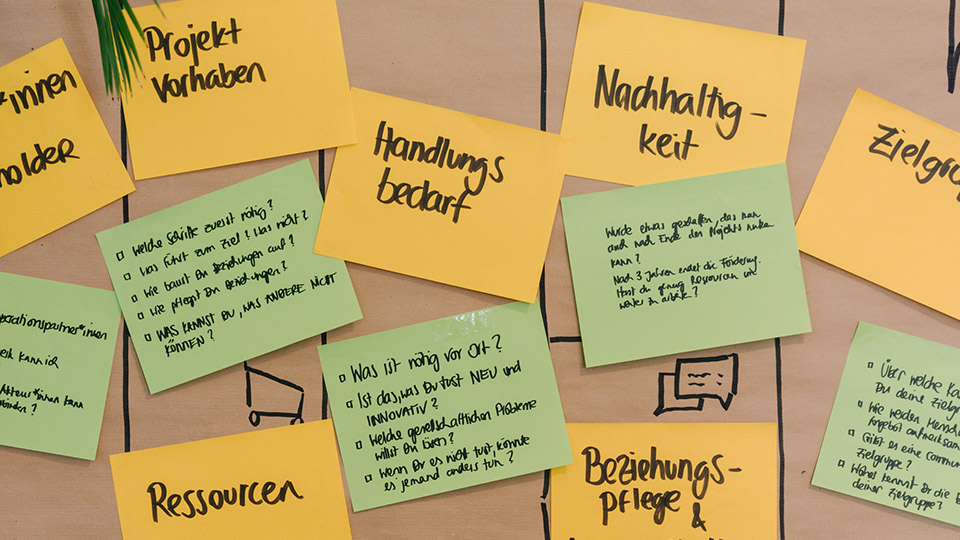 *innen
holder
Projekt
Vorhaben
Handlungs
bedarf
Nachhaltig-
keit
Zielgru
Welche Schritte zuerst nötig?
Was führt zum Ziel? Was nicht?
Wie baust Du Beziehungen auf?
Wie pflegst Du Beziehungen?
WAS KANNST DU, WAS ANDERE NICHT
KÖNNEN?
Wurde etwas geschaffen, das man
auch nach Ende des Projekts nutzen
kann?
Nach 3 Jahren endet die Förderung.
Hast du genug Ressourcen um
weiter zu arbeiten?
perationspartner*innen
kann ich
Akteur*innen kann
Was ist nötig vor Ort?
Ist das, was Du tust NEU und
INNOVATIV?
Welche gesellschaftlichen Probleme
willst Du lösen?
Wenn Du es nicht tust, könnte
es jemand anders tun?
Über welche Ka
Du deine Zielgr
Wie werden Mensche
Angebot aufmerksam
Gibt es eine Commun
Zielgruppe?
Woher kennst Du die B
deiner Zielgruppe?
Ressourcen
Beziehungs-
pflege &